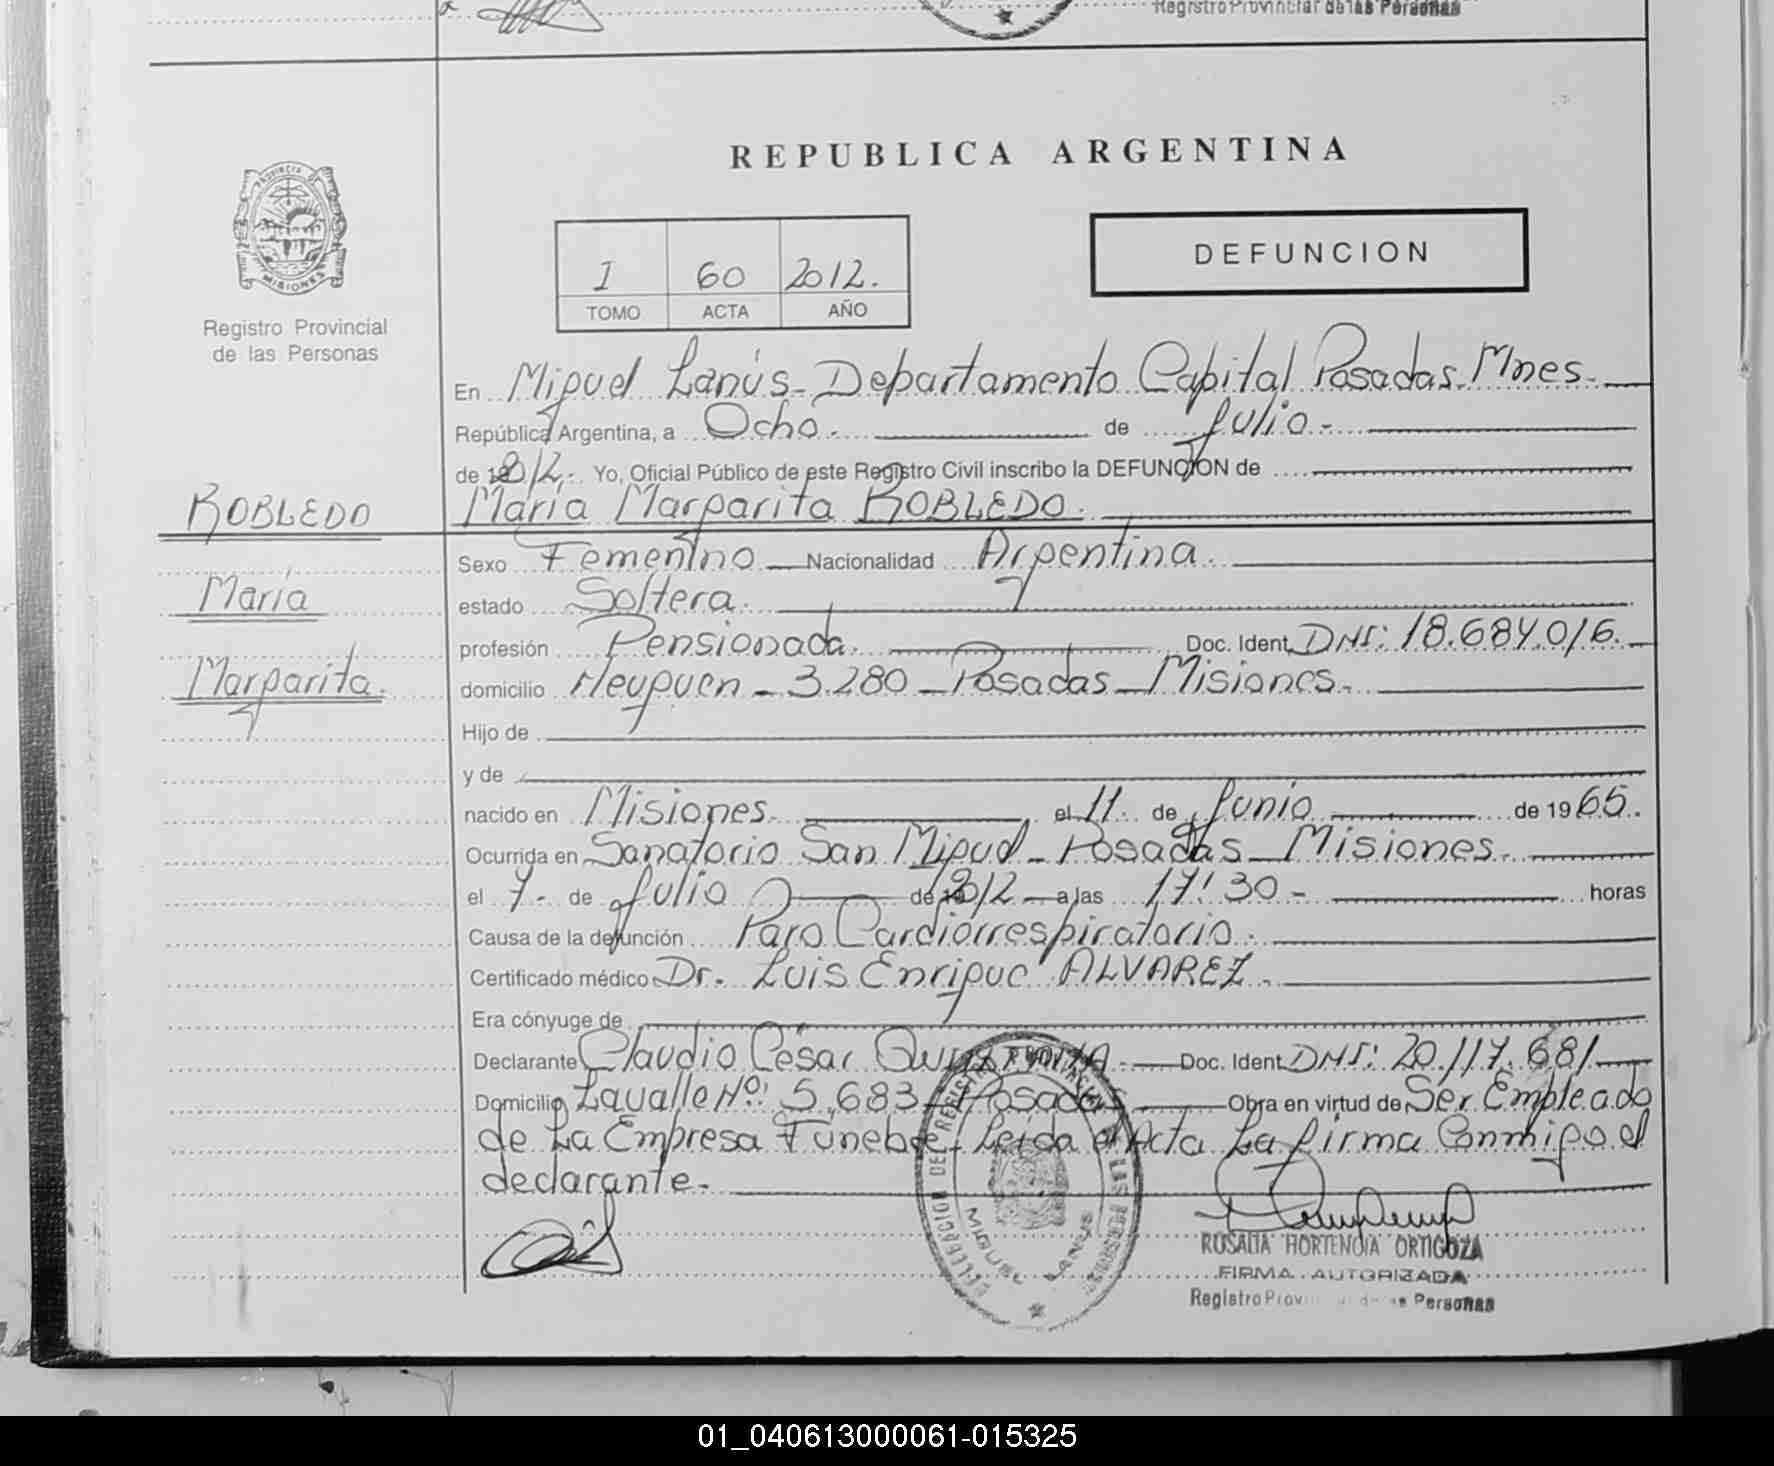 Registro Provincial de las Personas
PROVINCIA DE
MISIONES
Registro Provincial
de las Personas
REPUBLICA ARGENTINA
DEFUNCION
I 60 2012.
TOMO ACTA AÑO
En Miguel Lanús - Departamento Capital Posadas. Mnes.
República Argentina, a Ocho. de Julio -
de 2012. Yo, Oficial Público de este Registro Civil inscribo la DEFUNCION de
María Margarita ROBLEDO.
ROBLEDO
María
Margarita.
Sexo Femenino Nacionalidad Argentina.
estado Soltera.
profesión Pensionada. Doc. Ident. DNI: 18.684.016.
domicilio Neuquen - 3.280 - Posadas - Misiones.
Hijo de
y de
nacido en Misiones. el 11. de Junio de 1965.
Ocurrida en Sanatorio San Miguel - Posadas - Misiones.
el 7. de Julio de 2012 a las 17:30 - horas
Causa de la defunción Paro Cardiorrespiratorio.
Certificado médico Dr. Luis Enrique ALVAREZ.
Era cónyuge de
Declarante Claudio César Doc. Ident. DNI: 20.117.681
Domicilio Lavalle Nº: 5.683 - Posadas Obra en virtud de Ser Empleado
de La Empresa Fúnebre - Leida el Acta La firma Conmigo el
declarante.
DELEGACION DEL REGISTRO PROVINCIAL DE LAS PERSONAS
MIGUEL LANUS
ROSALIA HORTENCIA ORTIGOZA
FIRMA AUTORIZADA
Registro Provincial de las Personas
01_040613000061-015325